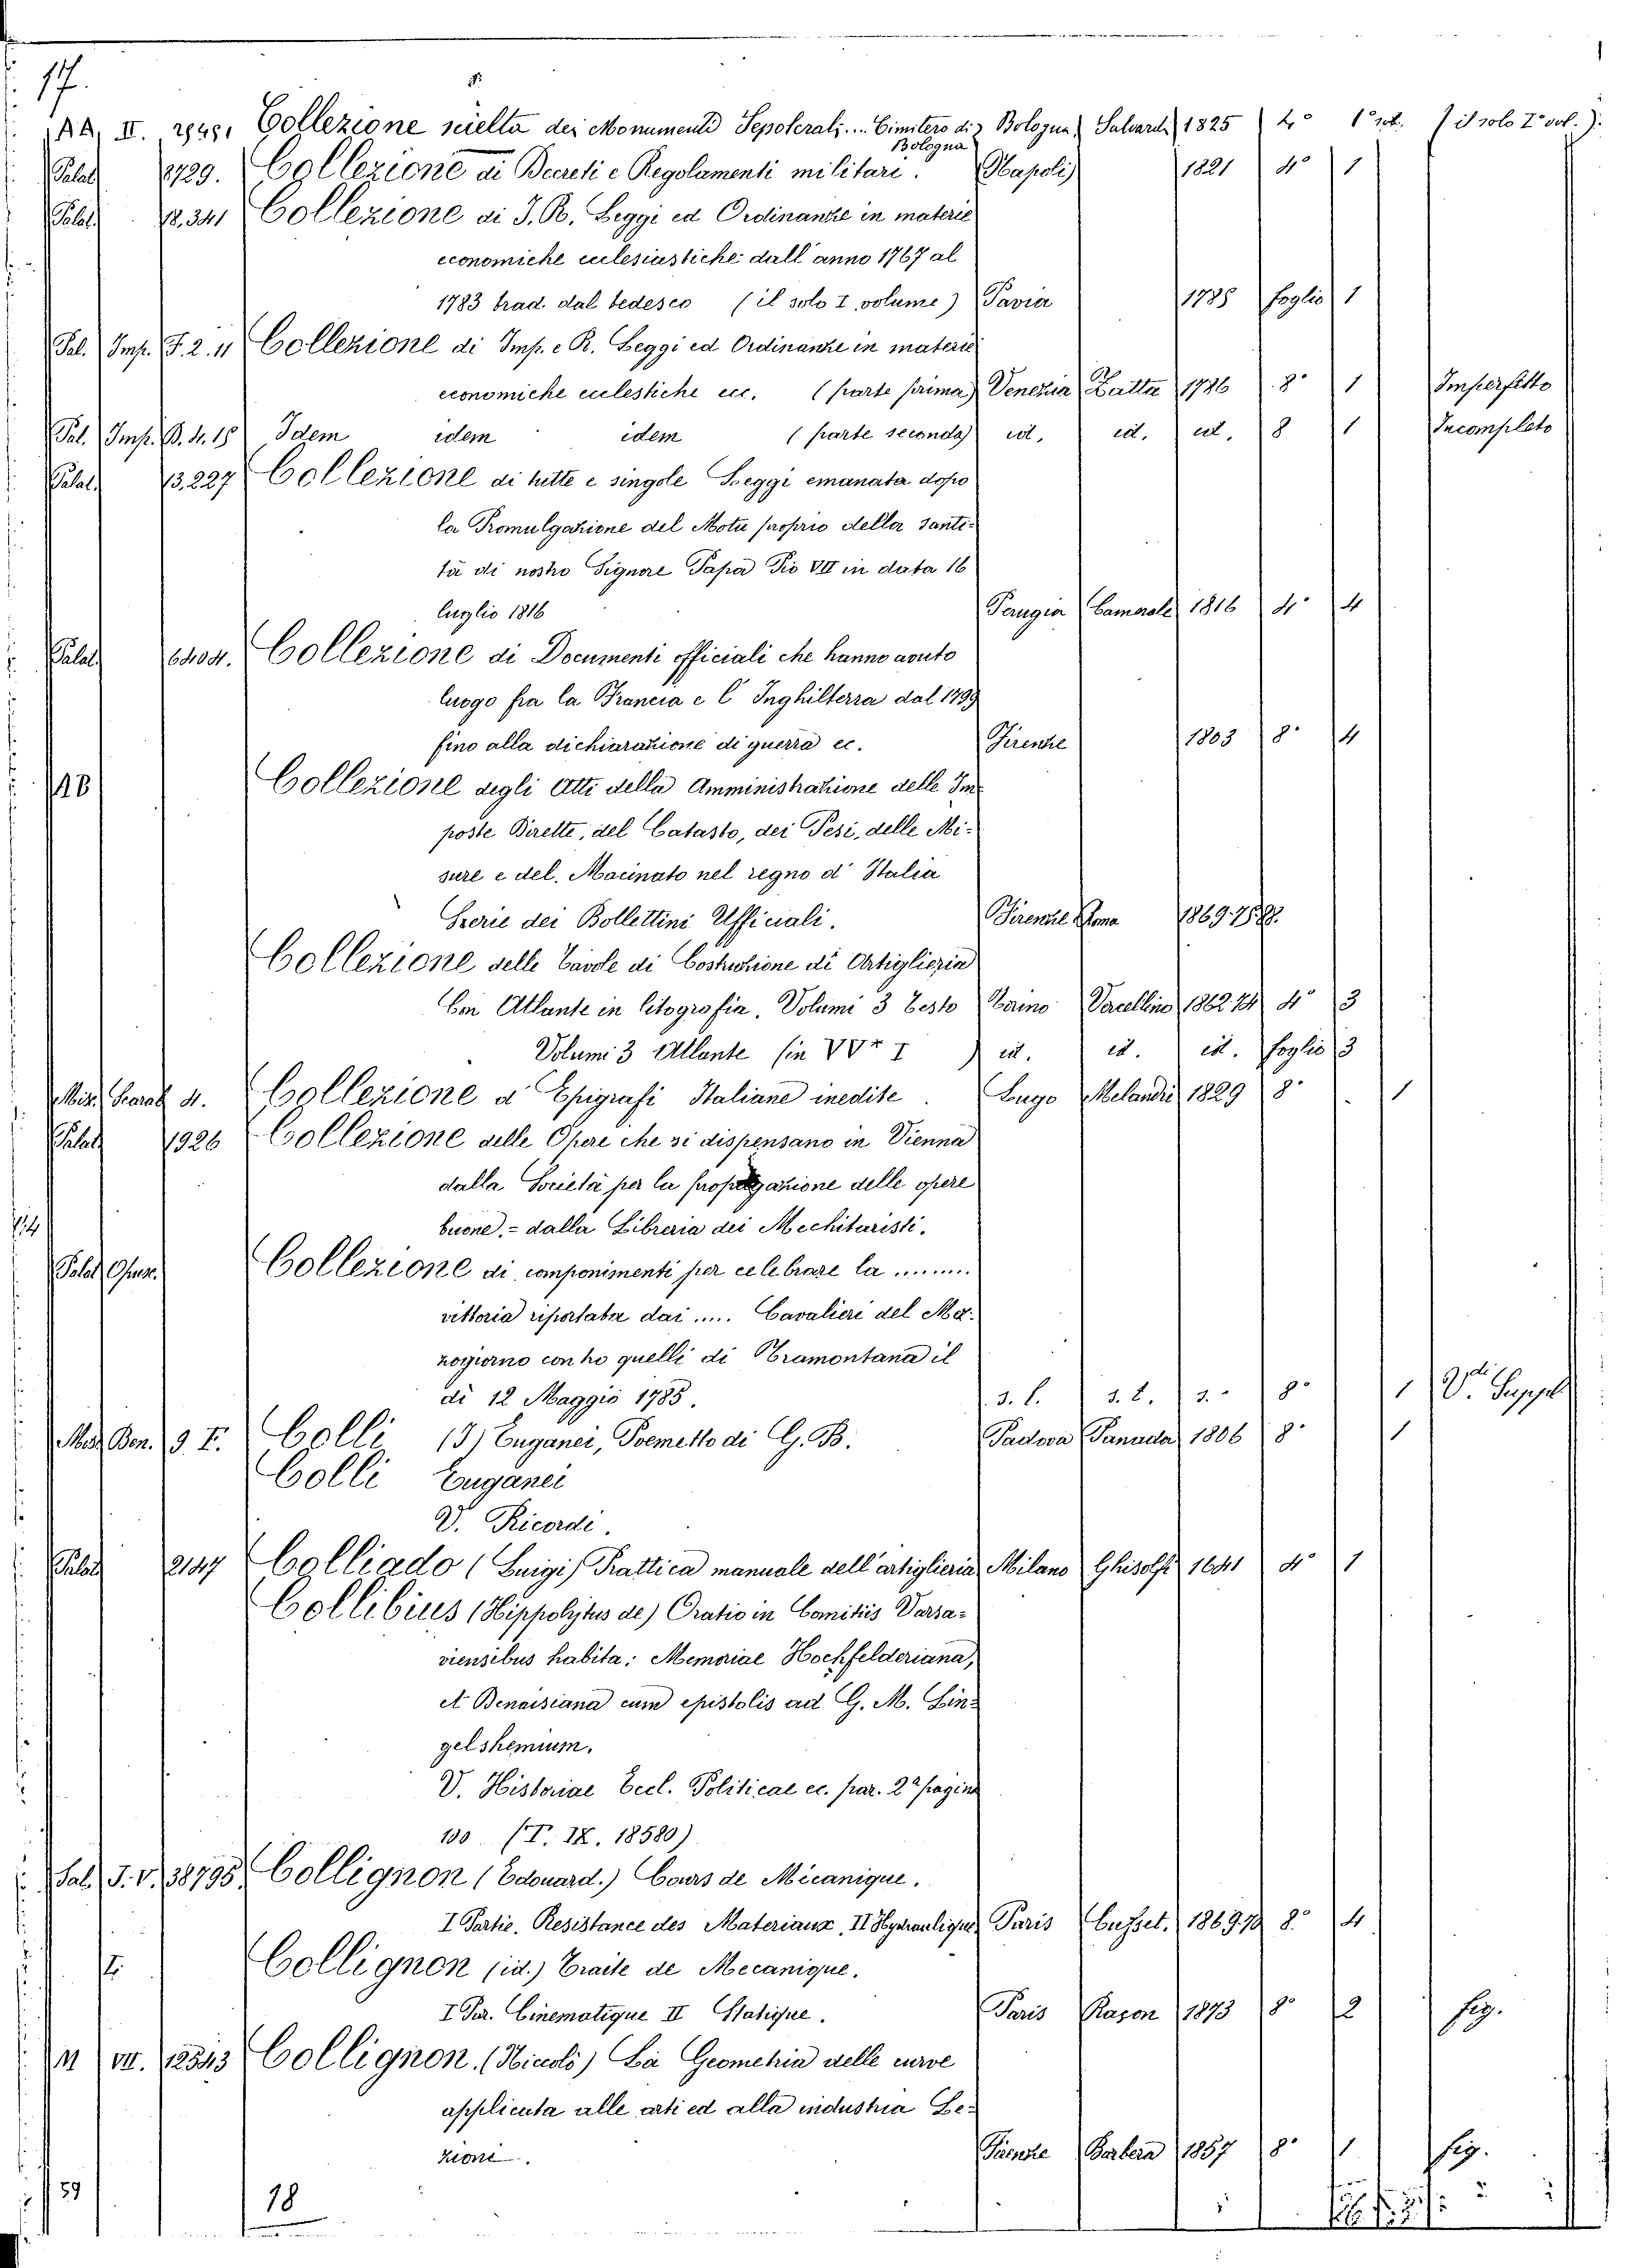 17.
AA. II. Collezione scielta dei Monumenti Sepolcrali.... Cimitero di Bologna Salvardi 1825 4° (il solo I° vol.).
Bologna
Palat. 2729. Collezione di Decreti e Regolamenti militari. (Napoli) 1821 4° 1
Palat. 12.341 Collezione di I. R. Leggi ed Ordinanze in materie
economiche eclesiastiche dall'anno 1767 al
1783 trad. dal tedesco (il solo I volume) Pavia 1785 foglio 1
Pal. Imp. F. 2. 11 Collezione di Imp. e R. Leggi ed Ordinanze in materie
economiche eclestiche ecc. (parte prima) Venezia Zatta 1786 8° 1 Imperfetto
Pal. Imp. B. 4. 15 Idem idem idem (parte seconda) id. id. id. 8 1 Incompleto
Palat. 13.227 Collezione di tutte e singole Leggi emanata dopo
la Promulgazione del Motu proprio della Santi-
tà di nostro Signore Papa Pio VII in data 16
luglio 1816 Perugia Camerale 1816 4° 4
Palat. 6404. Collezione di Documenti officiali che hanno avuto
luogo fra la Francia e l'Inghilterra dal 1799
fino alla dichiarazione di guerra ec. Firenze 1803 8° 4
18 Collezione degli Atti della Amministrazione delle Im-
poste Dirette, del Catasto, dei Pesi, delle Mi-
sure e del. Macinato nel regno d'Italia
Serie dei Bollettini Ufficiali. Firenze Roma 1869
Collezione delle Tavole di Costruzione di Artiglieria
Con Atlante in litografia. Volumi 3 Testo Torino Vercellino 1862 74 4° 3
Volumi 3 Atlante (in id. id. id. foglio 3
Misc. 4. Collezione d'Epigrafi Italiane inedite. Lugo Melandri 1829 8° 1
Palat. 1926 Collezione delle Opere che si dispensano in Vienna
dalla Società per la propagazione delle opere
buone, = dalla Libreria dei Mechitaristi.
14
Palat. Collezione di componimenti per celebrare la .......
vittoria riportata dai ..... Cavalieri del Me-
zogiorno contro quelli di Tramontana il
dì 12 Maggio 1785. s. l. s. t. s. 8° 1 Vedi Suppl.
Mos. Ben. 9 I. Colli (I) Euganei, Poemetto di G. B. Padova Penada 1806 8° 1
Colli Euganei
V. Ricordi.
Palat 2147 Colliado (Luigi) Prattica manuale dell'artiglieria Milano Ghisolfi 1641 4° 1
Collibius (Hippolytus de) Oratio in Comitiis Varsa-
viensibus habita: Memoriae Hochfelderiana,
et Benaisiana cum epistolis ad G. M. Lin-
gelshemium.
V. Historiae Eccl. Politicae ec. par. 2ª pagina
100 (T. IX. 18580)
Pal. I. V. 38795. Collignon (Edouard.) Cours de Mécanique.
I Partie. Resistance des Materiaux, II Hydraulique Paris Cusset. 1869.70 8° 4
Collignon (id.) Traite de Mecanique.
I Par. Cinematique II Statique. Paris Raçon 1873 8° 2 fig.
11 VII. 12543 Collignon. (Niccolò) La Geometria delle curve
applicata alle arti ed alla industria Le-
zioni. Firenze Barbera 1857 8° 1 fig.
59 18